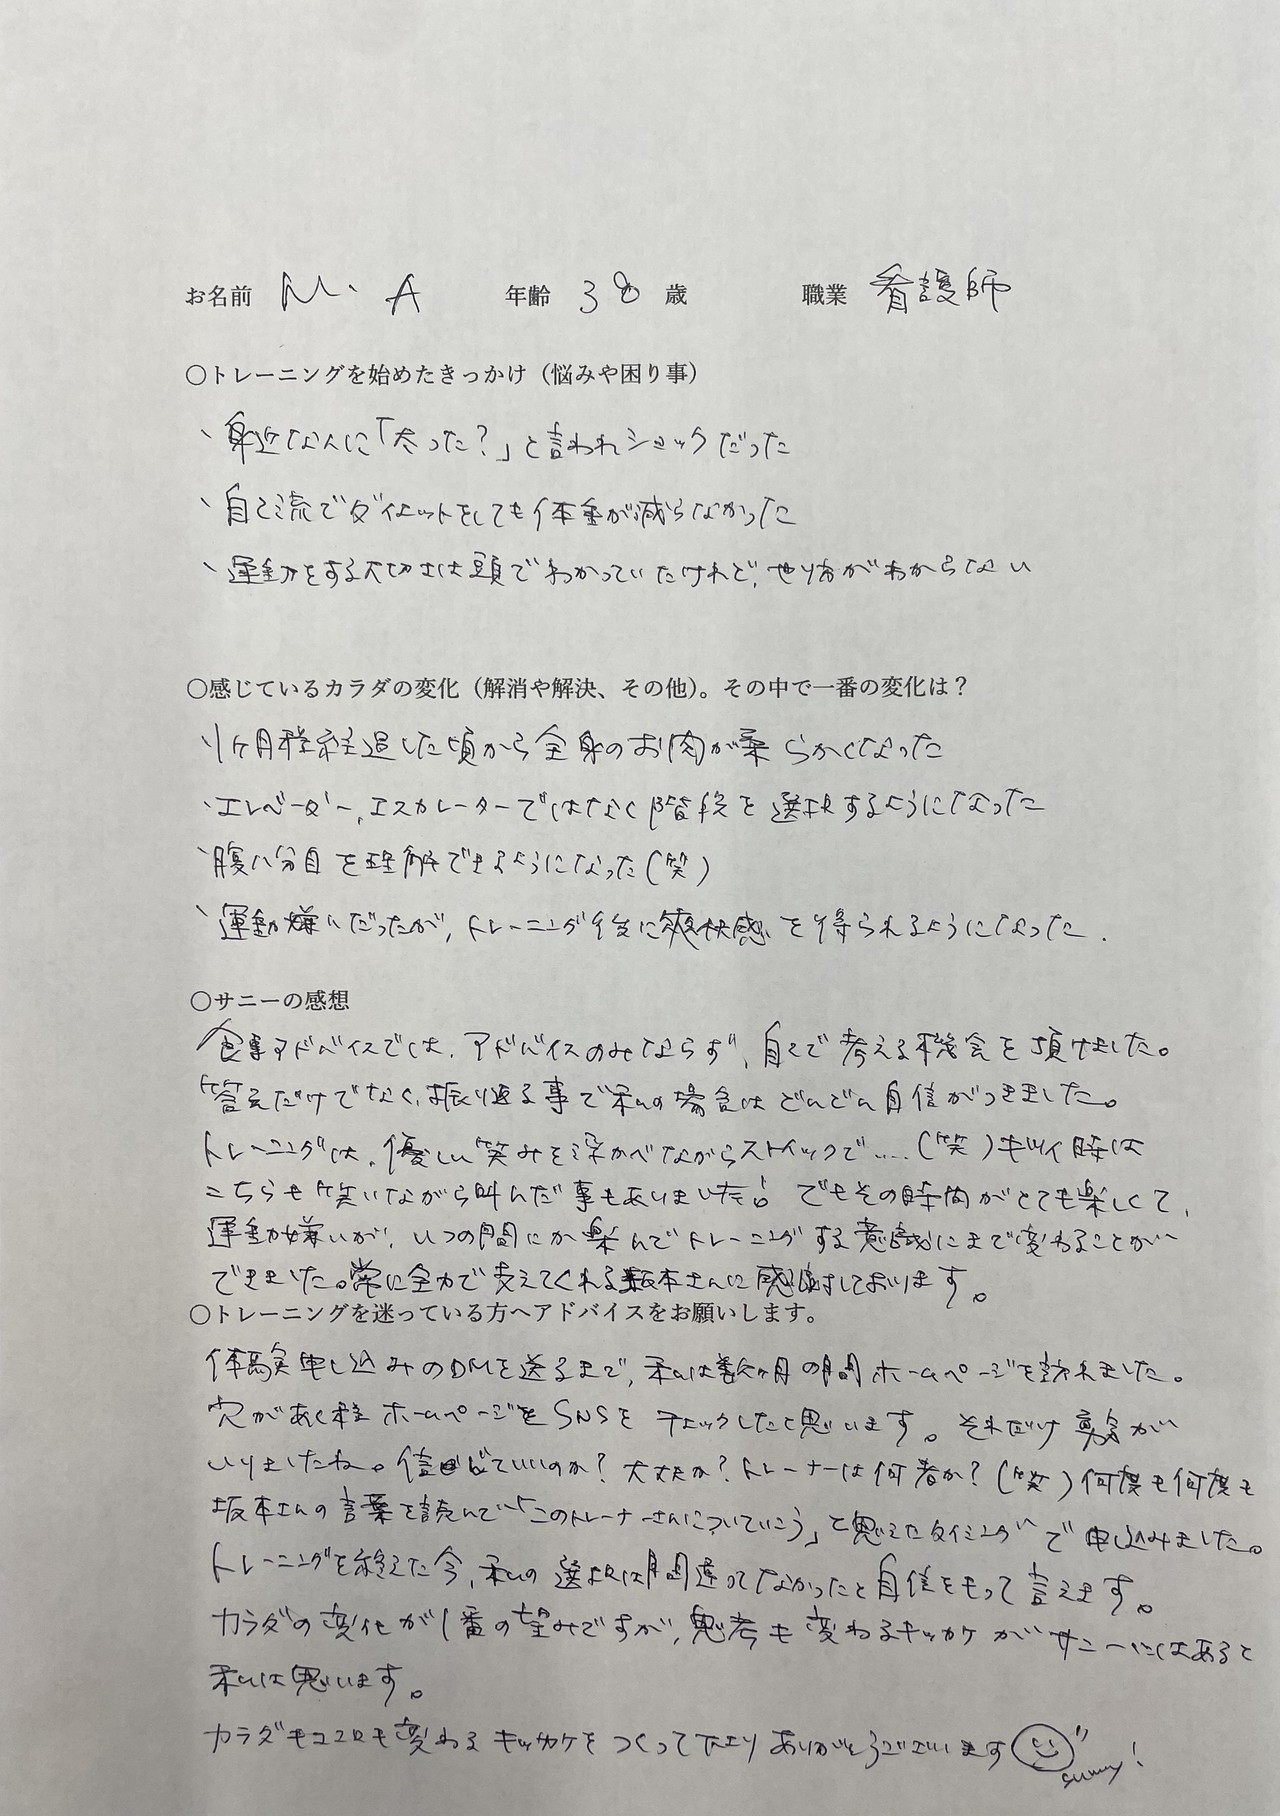 お名前 M.A 年齢 38 歳 職業 看護師
○トレーニングを始めたきっかけ（悩みや困り事）
、身近な人に「太った？」と言われショックだった
、自己流でダイエットをしても体重が減らなかった
、運動をする大切さは頭でわかっていたけれど、やり方がわからない
○感じているカラダの変化（解消や解決、その他）。その中で一番の変化は？
、1ヶ月程経過した頃から全身のお肉が柔らかくなった
、エレベーター、エスカレーターではなく階段を選択するようになった
、腹八分目を理解できるようになった(笑)
、運動嫌いだったが、トレーニング後に爽快感を得られるようになった.
○サニーの感想
食事アドバイスでは、アドバイスのみならず、自分で考える機会を頂けました。
答えだけでなく、振り返る事で私の場合はどんどん自信がつきました。
トレーニングは、優しい笑みを浮かべながらストイックで……(笑)キツイ時は
こちらも笑いながら叫んだ事もありました! でもその時間がとても楽しくて、
運動嫌いが、いつの間にか楽んでトレーニングする意識にまで変わることが
できました。常に全力で支えてくれる坂本さんに感謝しております。
○トレーニングを迷っている方へアドバイスをお願いします。
体験申し込みのDMを送るまで、私は数ヶ月の間ホームページを訪れました。
穴があく程ホームページをSNSをチェックしたと思います。それだけ勇気が
いりましたね。信じていいのか？大丈夫か？トレーナーは何者か？(笑)何度も何度も
坂本さんの言葉を読んで「このトレーナーさんについていこう」と思えたタイミングで申し込みました。
トレーニングを終えた今、私の選択は間違ってなかったと自信をもって言えます。
カラダの変化が1番の望みですが、思考も変わるキッカケがサニーにはあると
私は思います。
カラダもココロも変わるキッカケをつくって下さりありがとうございます
sunny!